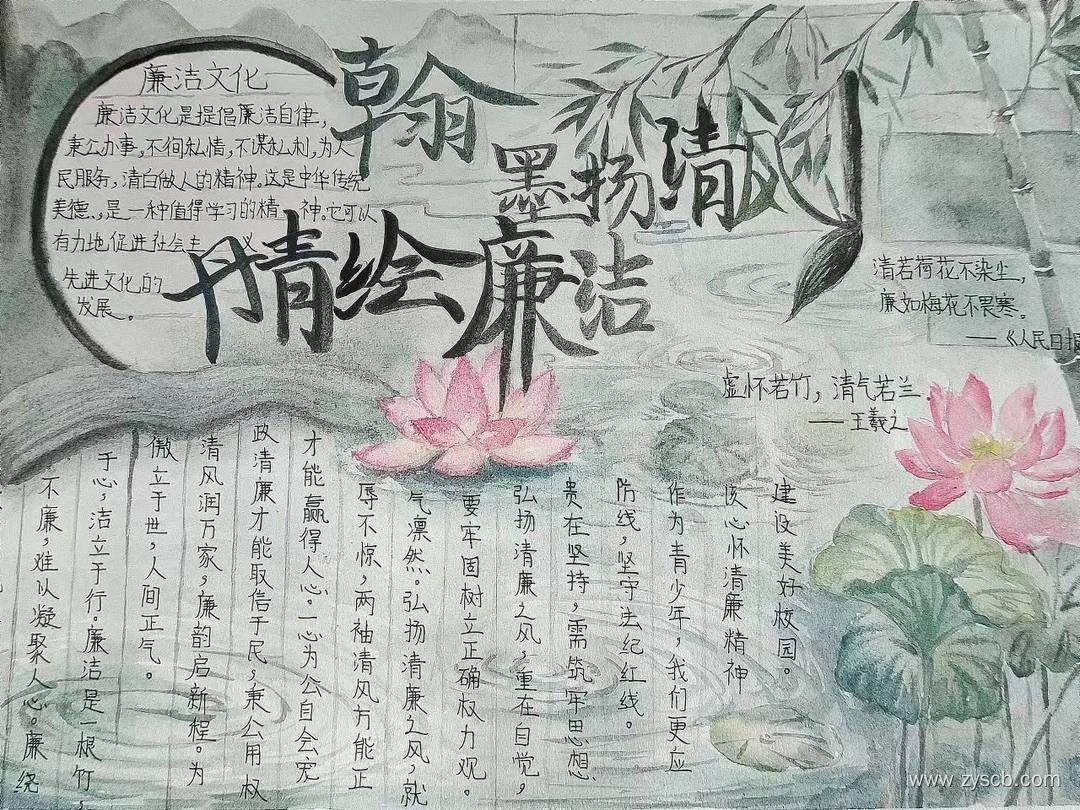 廉洁文化——
廉洁文化是提倡廉洁自律，
秉公办事，不徇私情，不谋私利，为人
民服务，清白做人的精神。这是中华传统
美德，是一种值得学习的精神。它可以
有力地促进社会主义
先进文化的
发展。
翰墨扬清风
丹青绘廉洁
清若荷花不染尘，
廉如梅花不畏寒。
——《人民日报
虚怀若竹，清气若兰。
——王羲之
不廉，难以凝聚人心。廉绕
于心，洁立于行。廉洁是一根竹，
傲立于世，人间正气。
清风润万家，廉韵启新程。为
政清廉才能取信于民，秉公用权
才能赢得人心。一心为公自会宠
辱不惊，两袖清风方能正
气凛然。弘扬清廉之风，就
要牢固树立正确权力观。
弘扬清廉之风，重在自觉，
贵在坚持，需筑牢思想
防线，坚守法纪红线。
作为青少年，我们更应
该心怀清廉精神
建设美好校园。
www.zyscb.com